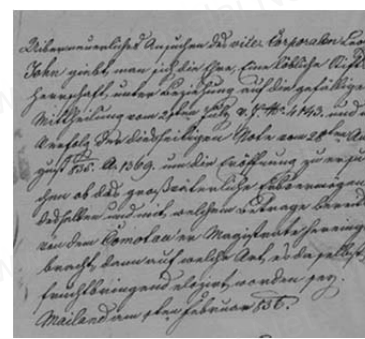 Über neuerliches Ansuchen des vice Corporalen Leo
John giebt man sich die Ehre, Eine löbliche
Herrschaft unter Beziehung auf die gefällige
Mittheilung vom 21ten July v. J. No 4143. und
Verfolg der diesseitigen Note vom 28ten Au
gust 835. A. 1369. um die Eröffnung zu ersu
chen ob das großväterliche Erbvermögen
desselben und mit welchem Betrage bereits
von dem Komotauer Magistrate hereinge
bracht, dann auf welche Art es daselbst
fruchtbringend elozirt worden sey.
Mailand am ten Februar 836.